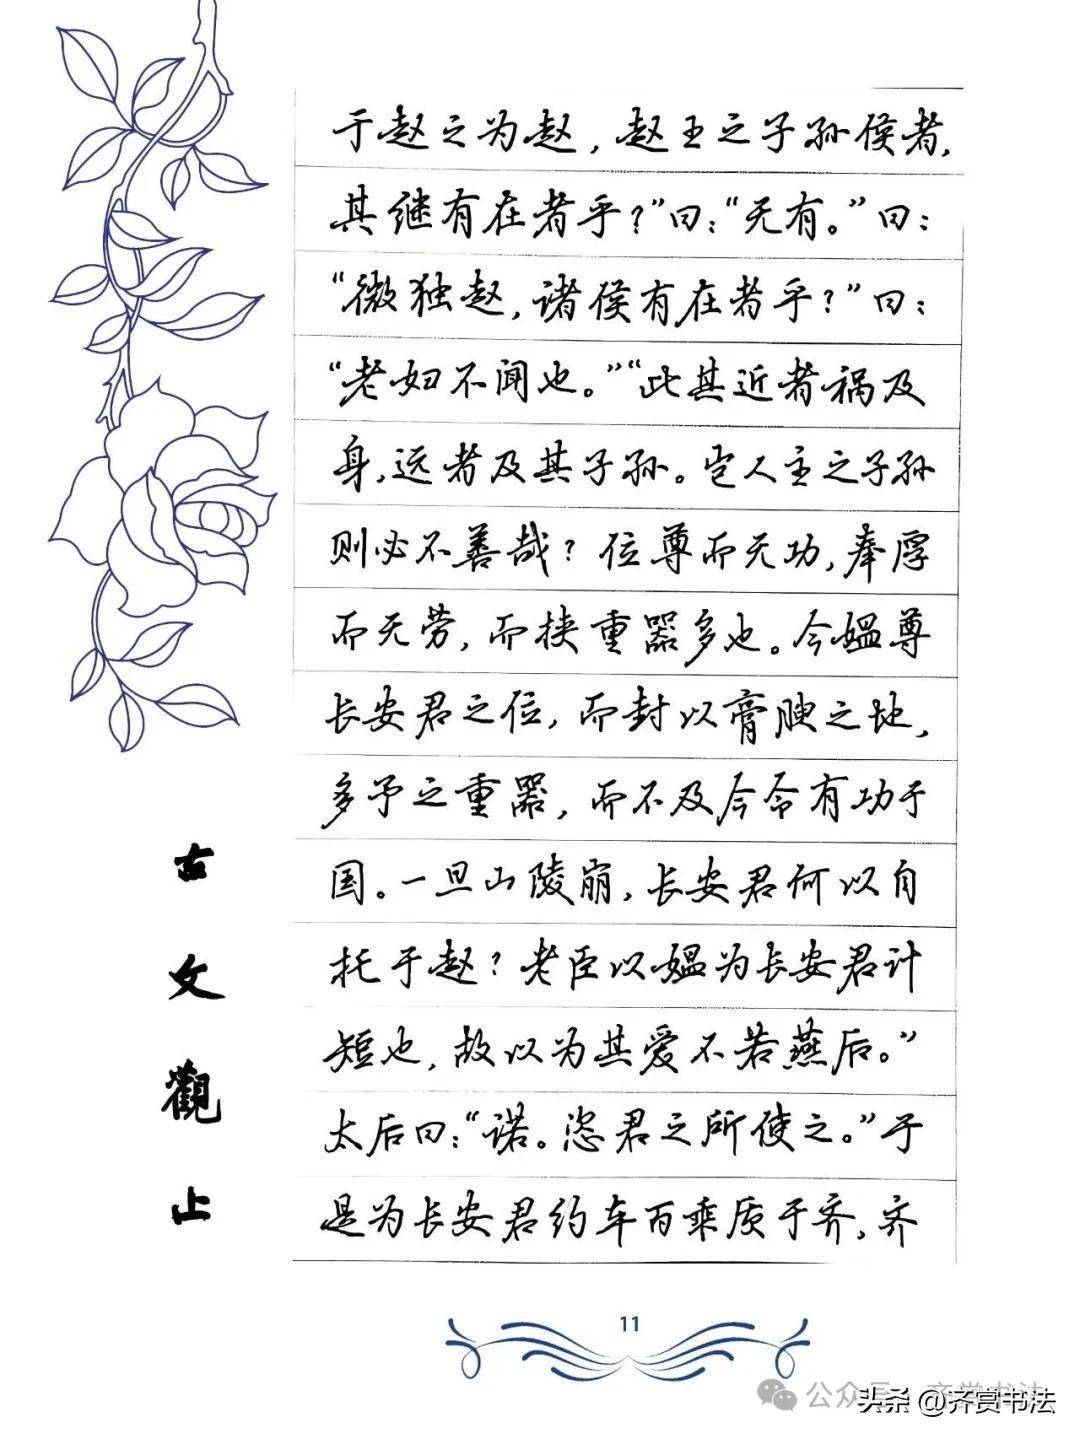 于赵之为赵，赵王之子孙侯者，
其继有在者乎？”曰：“无有。”曰：
“微独赵，诸侯有在者乎？”曰：
“老妇不闻也。”“此其近者祸及
身，远者及其子孙。岂人主之子孙
则必不善哉？位尊而无功，奉厚
而无劳，而挟重器多也。今媪尊
长安君之位，而封以膏腴之地，
多予之重器，而不及今令有功于
国。一旦山陵崩，长安君何以自
托于赵？老臣以媪为长安君计
短也，故以为其爱不若燕后。”
太后曰：“诺。恣君之所使之。”于
是为长安君约车百乘质于齐，齐
古文觀止
11
头条 @齐赏书法